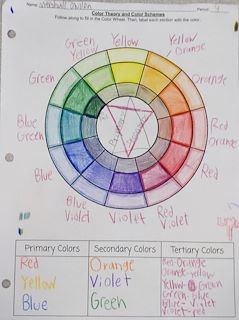 Name:
Period:
Color Theory and Color Schemes
Follow along to fill in the Color Wheel. Then, label each section with the color.
Green Yellow
Yellow
Yellow Orange
Green
Orange
Blue Green
Red Orange
Blue
Red
Blue Violet
Violet
Red Violet
Primary Colors
Secondary Colors
Tertiary Colors
Red
Orange
Red-Orange
Orange-yellow
Yellow
Violet
Yellow-Green
Green-blue
Blue
Green
Blue-Violet
Violet-red